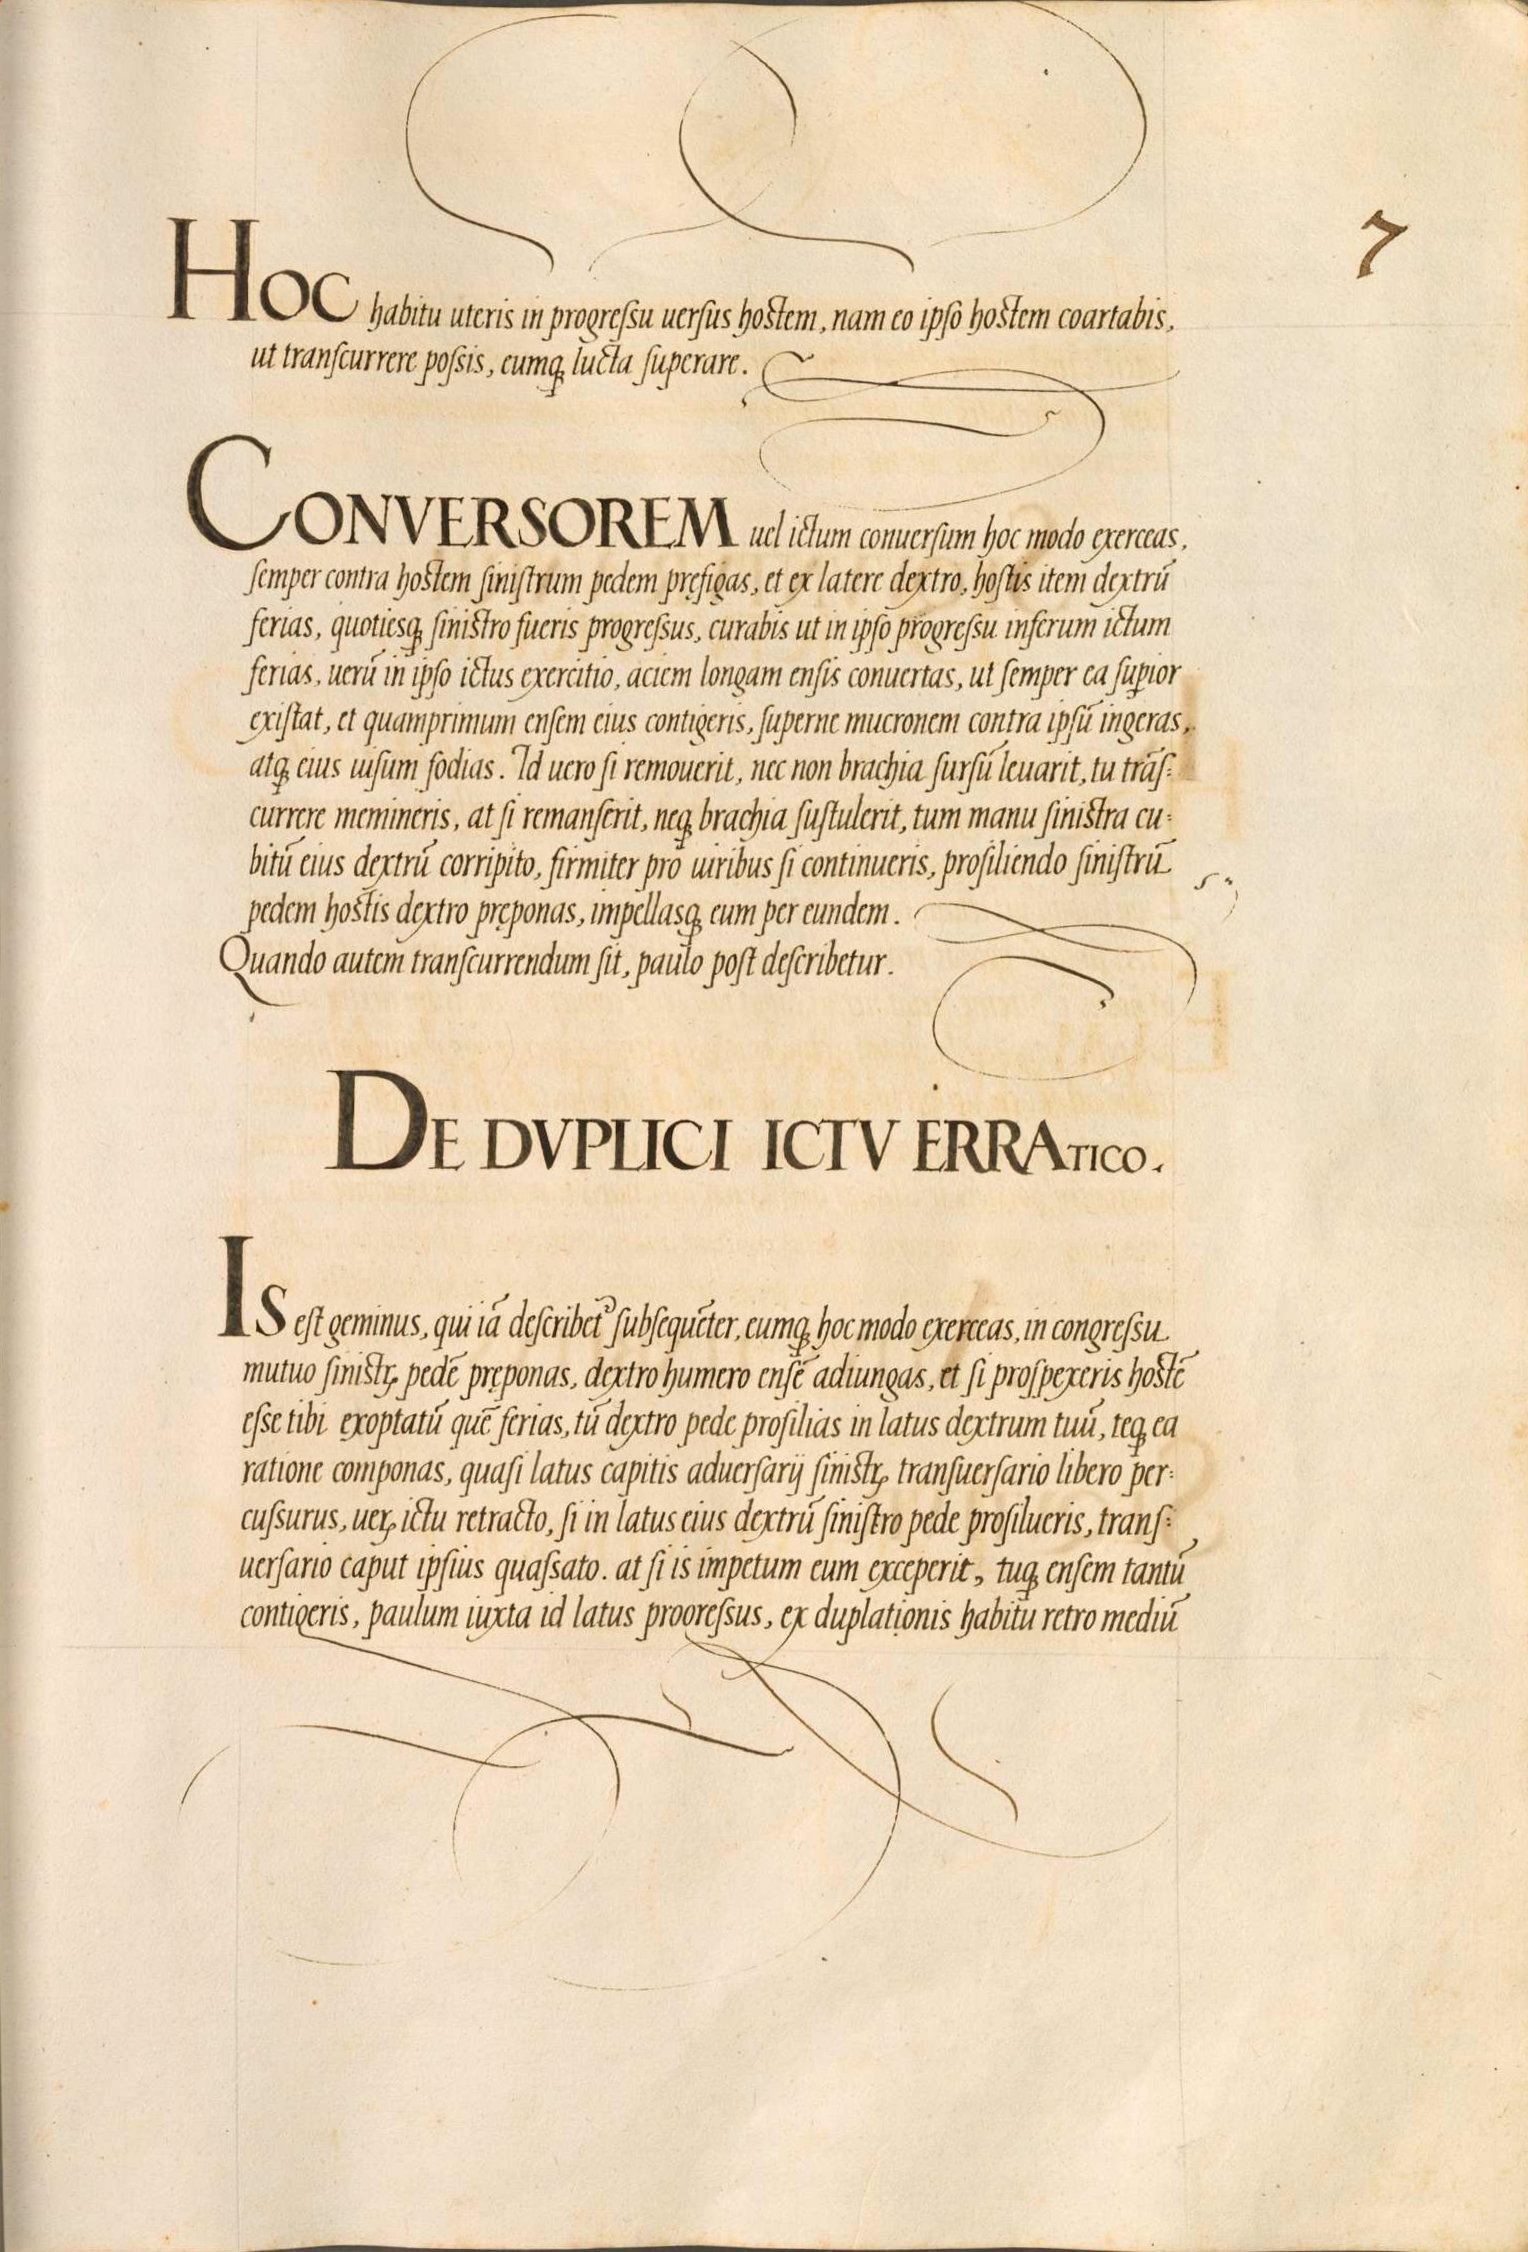 7
Hoc habitu uteris in progreſsu uerſus hoſtem, nam eo ipſo hoſtem coartabis,
ut tranſcurrere poſsis, eumq̨ lucta ſuperare.
CONVERSOREM uel ictum conuerſum hoc modo exerceas,
ſemper contra hoſtem ſiniſtrum pedem pręfigas, et ex latere dextro, hoſtis item dextrū
ferias, quotieſq̨ ſiniſtro fueris progreſsus, curabis ut in ipſo progreſsu inferum ictum
ferias, uerū in ipſo ictus exercitio, aciem longam enſis conuertas, ut ſemper ea ſup̱ior
exiſtat, et quamprimum enſem eius contigeris, ſuperne mucronem contra ipſū ingeras,
atq̨ eius uiſum fodias. Id uero ſi remouerit, nec non brachia surſū leuarit, tu trāſ:
currere memineris, at ſi remanſerit, neq̨ brachia ſuſtulerit, tum manu ſiniſtra cu:
bitū eius dextrū corripito, firmiter pro uiribus ſi continueris, proſiliendo ſiniſtrū
pedem hoſtis dextro pręponas, impellasq̨ eum per eundem.
Quando autem tranſcurrendum ſit, paulo poſt deſcribetur.
DE DVPLICI ICTV ERRATICO.
Is eſt geminus, qui iā deſcribet᷑ ſubſequēter, eumq̨ hoc modo exerceas, in congreſsu
mutuo ſiniſtꝝ pedē pręponas, dextro humero enſē adiungas, et ſi proſpexeris hoſtē
eſse tibi exoptatū quē ferias, tū dextro pede proſilias in latus dextrum tuū, teq̨ ea
ratione componas, quaſi latus capitis aduerſarij ſiniſtꝝ tranſuerſario libero per:
cuſsurus, ueꝝ ictu retracto, ſi in latus eius dextrū ſiniſtro pede proſilueris, tranſ:
uerſario caput ipſius quaſsato. at ſi is impetum eum exceperit, tuq̨ enſem tantū
contigeris, paulum iuxta id latus progreſsus, ex duplationis habitu retro mediū